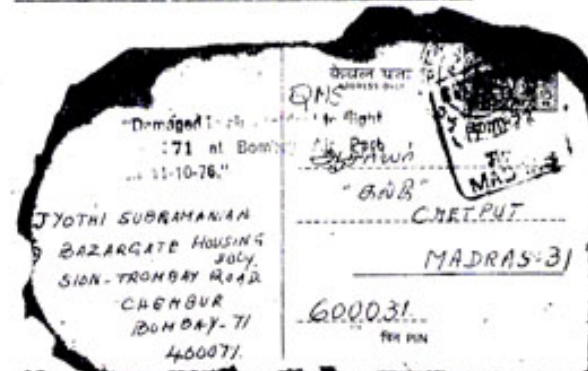 "Damaged
Flight
171 at Bombay Air Port
11-10-76."
JYOTHI SUBRAMANIAN
BAZARGATE HOUSING
SOCY.
SION-TROMBAY ROAD
CHEMBUR
BOMBAY-71
400071.
केवल पता
ADDRESS ONLY
QMS
CHETPUT
MADRAS-31
600031
पिन PIN